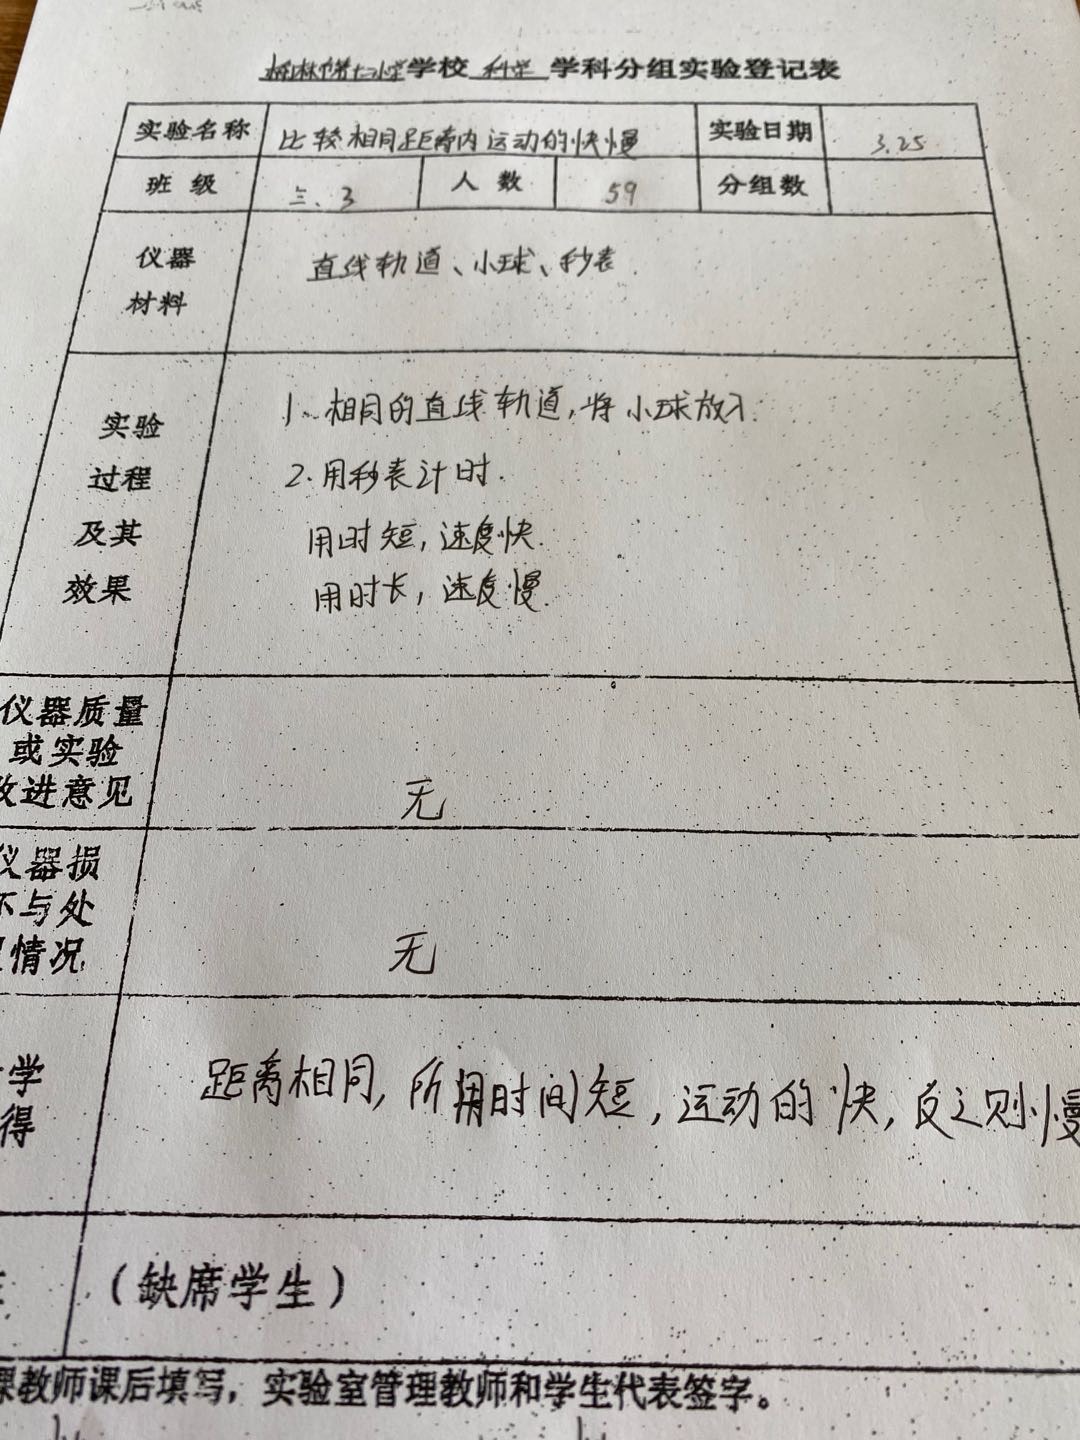 学校 科学 学科分组实验登记表
实验名称 比较相同距离内运动的快慢 实验日期 3.25
班 级 三、3 人 数 59 分组数
仪器 直线轨道、小球、秒表.
材料
实验 1、相同的直线轨道,将小球放入.
过程 2.用秒表计时.
及其 用时短,速度快.
效果 用时长,速度慢.
仪器质量
或实验
改进意见 无
仪器损
坏与处
情况 无
学 距离相同,所用时间短,运动的快,反之则慢
得
(缺席学生)
课教师课后填写,实验室管理教师和学生代表签字。